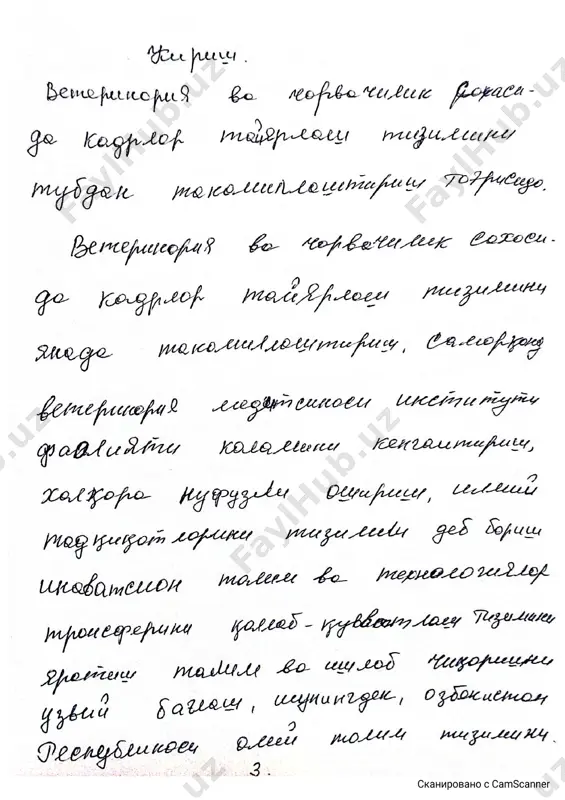 Кириш.
Ветеринория ва чорвачилик сохаси-
да кадрлор тайёрлаш тизимини
тубдан такомиллаштириш тоғрисидо.
Ветеринория ва чорвачилик сохоси-
да кадрлор тайёрлаш тизимини
янада такомиллоштириш, Саморқанд
ветеринория медитсиноси институти
фаолияти коламини кенгаитириш,
халқора нуфузли ошириш, илмий
тадқиқотлорини тизимли деб бориш
иноватсион толим ва технологиялор
тронсферини қаллаб-қувватлаш тизимини
яротиш талим ва ишлоб чиқоришни
узвий боглаш, шунингдек, озбокистон
Республикоси олий толим тизимини.
3.
Сканировано с CamScanner
FaylHub.uz